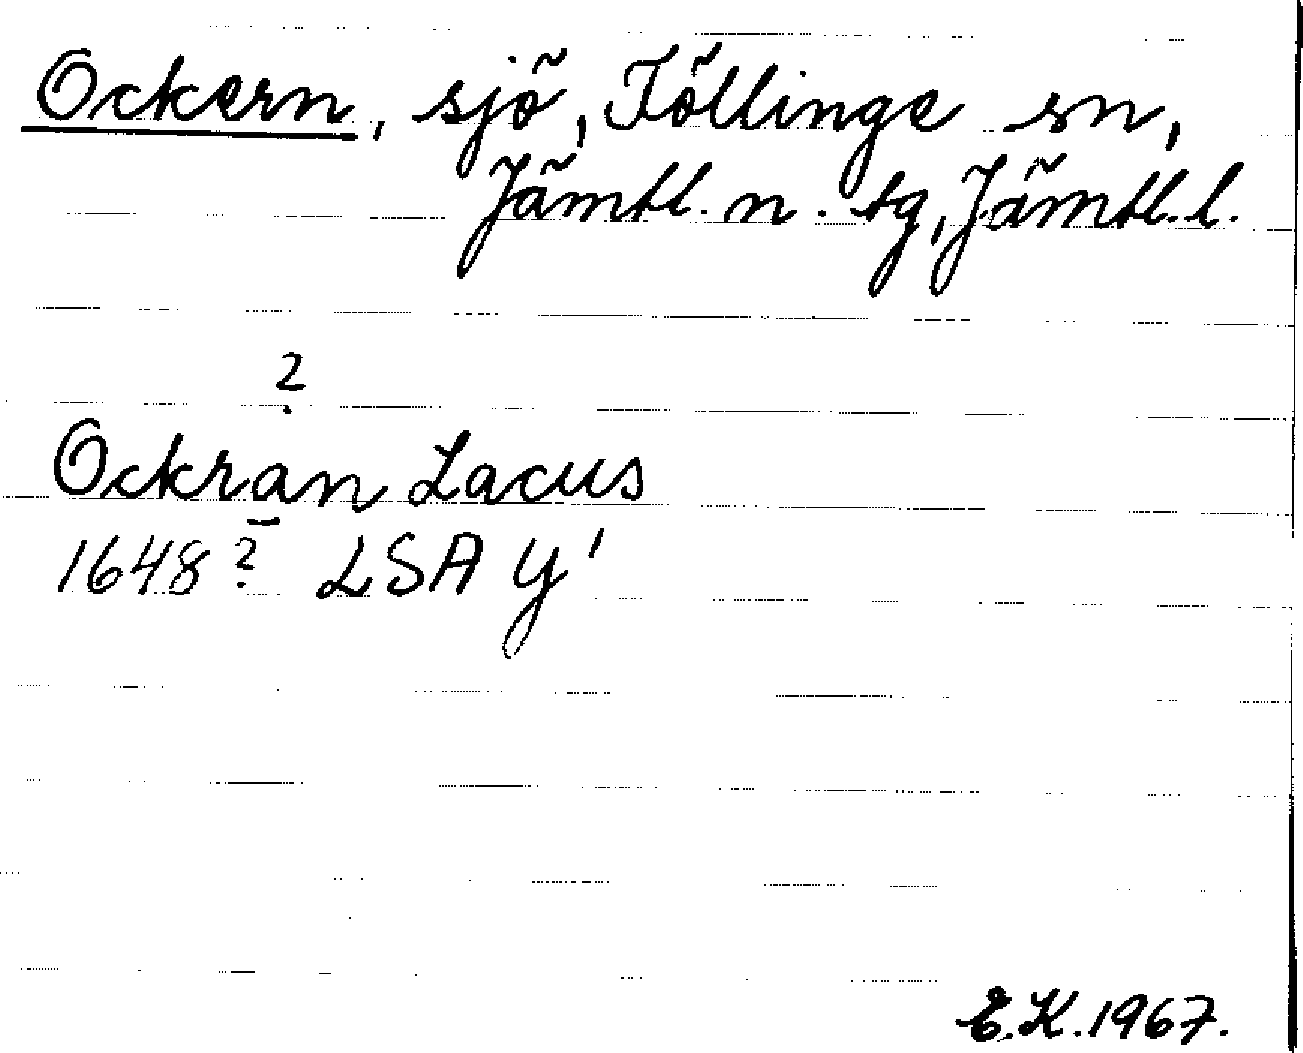 Ockern, sjö, Föllinge sn,
Jämtl. n. tg, Jämtl. l.
?
Ockran Lacus
1648? LSA Y¹
E.K. 1967.